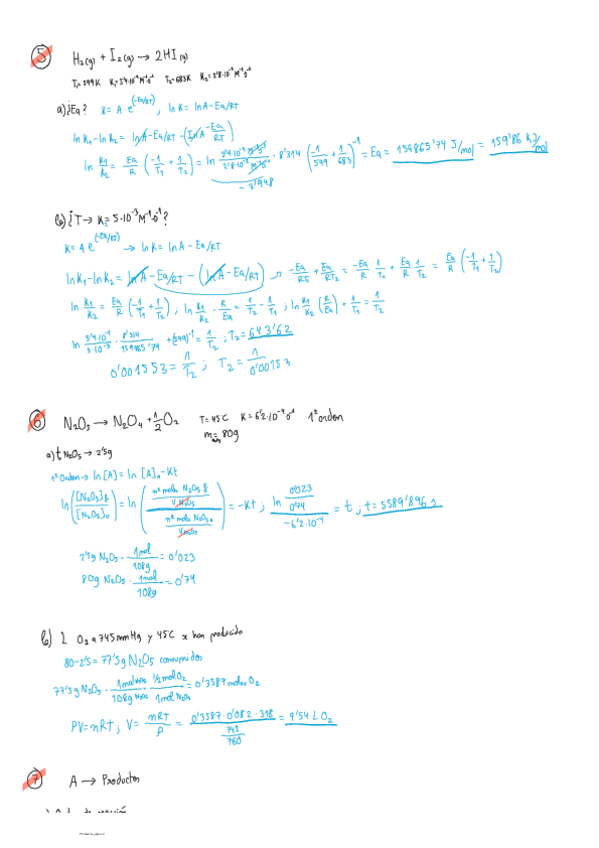 5 H₂(g) + I₂(g) → 2HI(g)
T₁=599K K₁=5'4·10⁻⁴M⁻¹s⁻¹ T₂=683K K₂=2'8·10⁻²M⁻¹s⁻¹
a) ¿Ea? K = A e^(-Ea/RT), ln K = lnA - Ea/RT
ln K₁ - ln K₂ = lnA - Ea/RT - (lnA - Ea/RT)
ln K₁/K₂ = Ea/R (-1/T₁ + 1/T₂) = ln 5'4·10⁻⁴ M⁻¹s⁻¹ / 2'8·10⁻² M⁻¹s⁻¹ · 8'314 (-1/599 + 1/683)⁻¹ = Ea = 159865'74 J/mol = 159'86 KJ/mol
- 3'948
b) ¿T → K = 5·10⁻³M⁻¹s⁻¹?
K = A e^(-Ea/RT) → ln K = ln A - Ea/RT
ln K₁ - ln K₂ = ln A - Ea/RT - (ln A - Ea/RT) → -Ea/RT₁ + Ea/RT₂ = -Ea/R 1/T₁ + Ea/R 1/T₂ = Ea/R (-1/T₁ + 1/T₂)
ln K₁/K₂ = Ea/R (-1/T₁ + 1/T₂); ln K₁/K₂ · R/Ea = 1/T₂ - 1/T₁; ln K₁/K₂ (R/Ea) + 1/T₁ = 1/T₂
ln 5'4·10⁻⁴ / 5·10⁻³ · 8'314 / 159865'74 + (599)⁻¹ = 1/T₂; T₂ = 643'62
0'001553 = 1/T₂; T₂ = 1/0'00153
6 N₂O₅ → N₂O₄ + 1/2 O₂ T=45°C K=6'2·10⁻⁴s⁻¹ 1º orden
m = 80g
a) t N₂O₅ → 2'5g
1º Orden → ln [A] = ln [A]₀ - Kt
ln ([N₂O₅]f / [N₂O₅]₀) = ln (nº moles N₂O₅ f / V N₂O₅ / nº moles N₂O₅₀ / V N₂O₅) = -Kt; ln 0'023 / 0'74 / -6'2·10⁻⁴ = t; t = 5589'896 s
2'5g N₂O₅ · 1mol / 108g = 0'023
80g N₂O₅ · 1mol / 108g = 0'74
b) L O₂ a 745mmHg y 45°C x han producido
80-2'5 = 77'5g N₂O₅ consumidos
77'5g N₂O₅ · 1mol N₂O₅ / 108g N₂O₅ · 1/2 mol O₂ / 1mol N₂O₅ = 0'3587 moles O₂
PV = nRt; V = nRT / P = 0'3587·0'082·318 / 745/760 = 9'54 L O₂
7 A → Productos